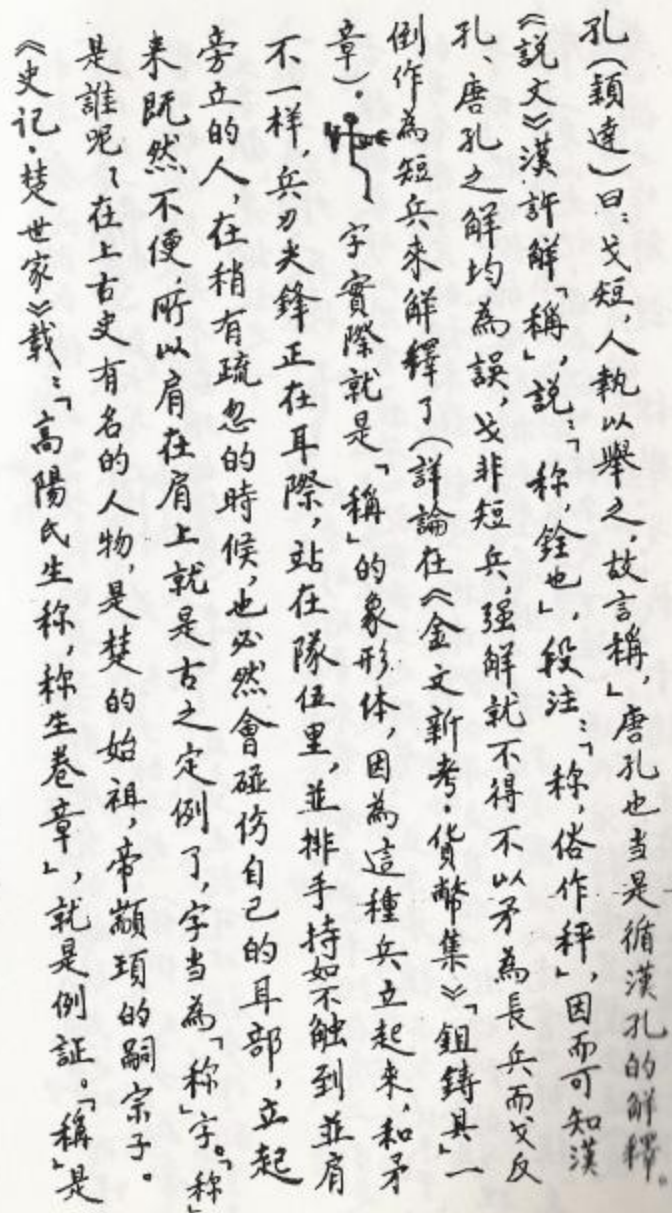 孔(穎達)曰:戈短,人執以舉之,故言稱,」唐孔也当是循漢孔的解釋。
《説文》漢許解「稱」説:「称,銓也」,段注:「称,俗作秤」,因而可知漢
孔、唐孔之解均為誤,戈非短兵,强解就不得不以矛為長兵而戈反
倒作為短兵来解釋了(詳論在《金文新考·貨幣集》「鉏鋳具」一
章)。字實際就是「稱」的象形体,因為這種兵立起来,和矛
不一样,兵刃尖鋒正在耳際,站在隊伍里,並排手持如不触到並肩
旁立的人,在稍有疏忽的時候,也必然會碰伤自己的耳部,立起
来既然不便,所以肩在肩上就是古之定例了,字当為「称」字。「称」
是誰呢?在上古史有名的人物,是楚的始祖,帝顓頊的嗣宗子。
《史记·楚世家》載:「高陽氏生称,称生卷章」,就是例証。「稱」是